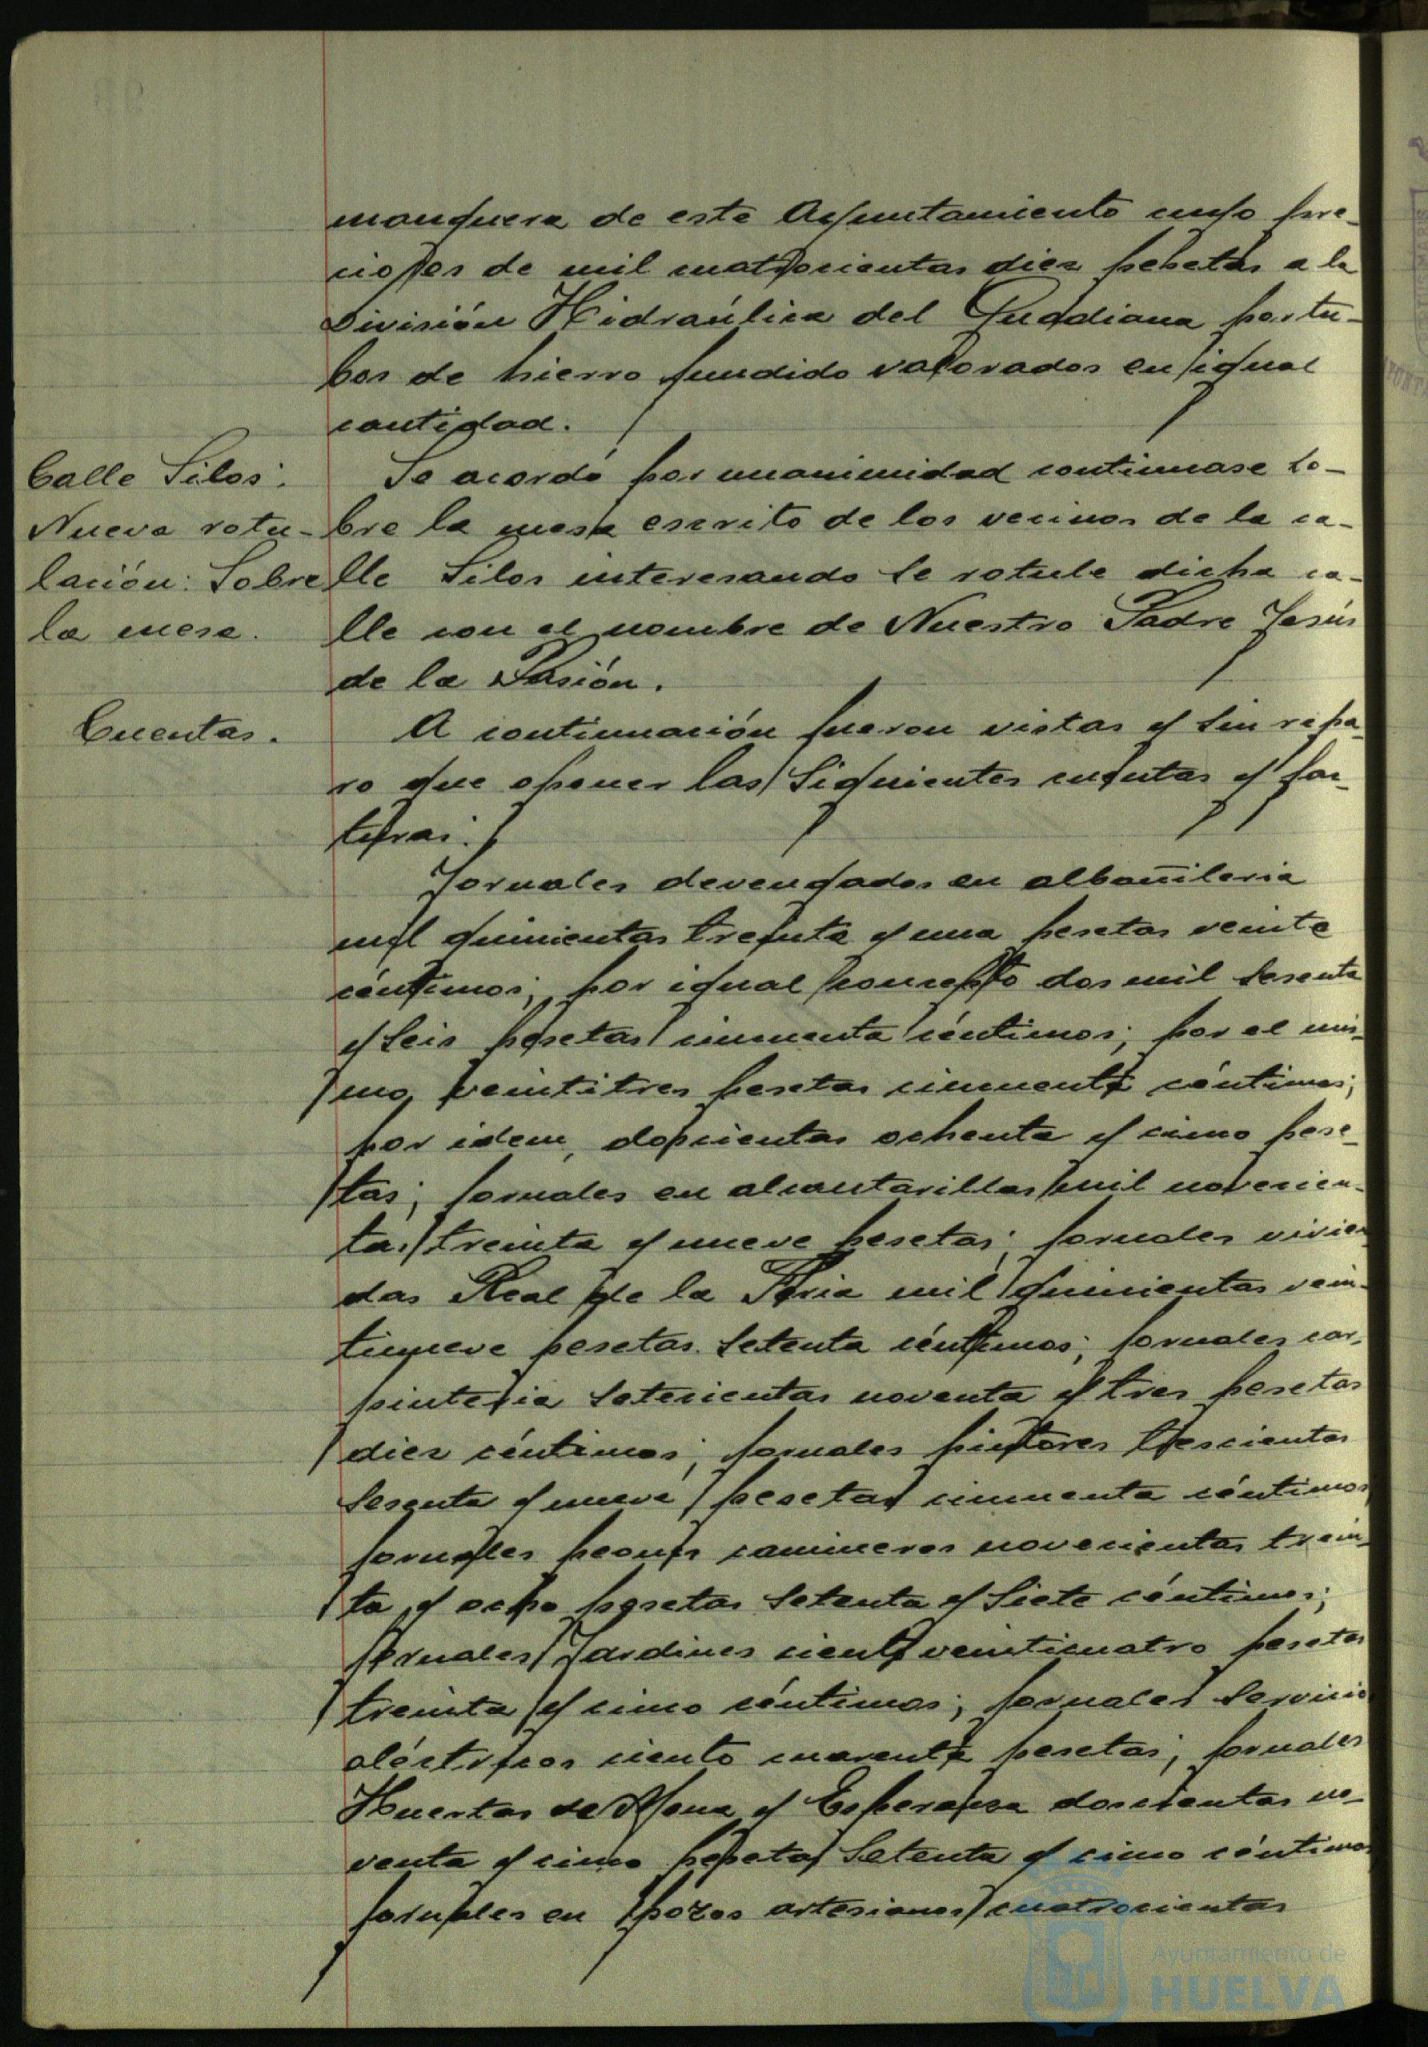 manguera de este Ayuntamiento cuyo pre-
cio es de mil cuatrocientas diez pesetas a la
División Hidraúlica del Guadiana por tu-
bos de hierro fundido valorados en igual
cantidad.
Calle Silos:
Nueva rotu-
lación: Sobre
la mesa.
Se acordó por unanimidad continuase so-
bre la mesa escrito de los vecinos de la ca-
lle Silos interesando se rotule dicha ca-
lle con el nombre de Nuestro Padre Jesús
de la Pasión.
Cuentas.
A continuación fueron vistas y sin repa-
ro que oponer las siguientes cuentas y fac-
turas:
Jornales devengados en albañileria
mil quinientas treinta y una pesetas veinte
céntimos; por igual concepto dos mil sesenta
y seis pesetas cincuenta céntimos; por el mis-
mo, veintitres pesetas cincuenta céntimos;
por idem, doscientas ochenta y cinco pese-
tas; jornales en alcantarillas mil novecien-
tas treinta y nueve pesetas; jornales vivien-
das Real de la Feria mil quinientas vein-
tinueve pesetas setenta céntimos; jornales car-
pinteria setecientas noventa y tres pesetas
diez céntimos; jornales pintores trescientas
sesenta y nueve pesetas cincuenta céntimos
jornales peones camineros novecientas trein-
ta y ocho pesetas setenta y siete céntimos;
jornales Jardines ciento veinticuatro pesetas
treinta y cinco céntimos; jornales servicio
eléctricos ciento cuarenta pesetas; jornales
Huertas de Mena y Esperanza doscientas no-
venta y cinco pesetas setenta y cinco céntimos
jornales en pozos artesianos cuatrocientas
Ayuntamiento de
HUELVA